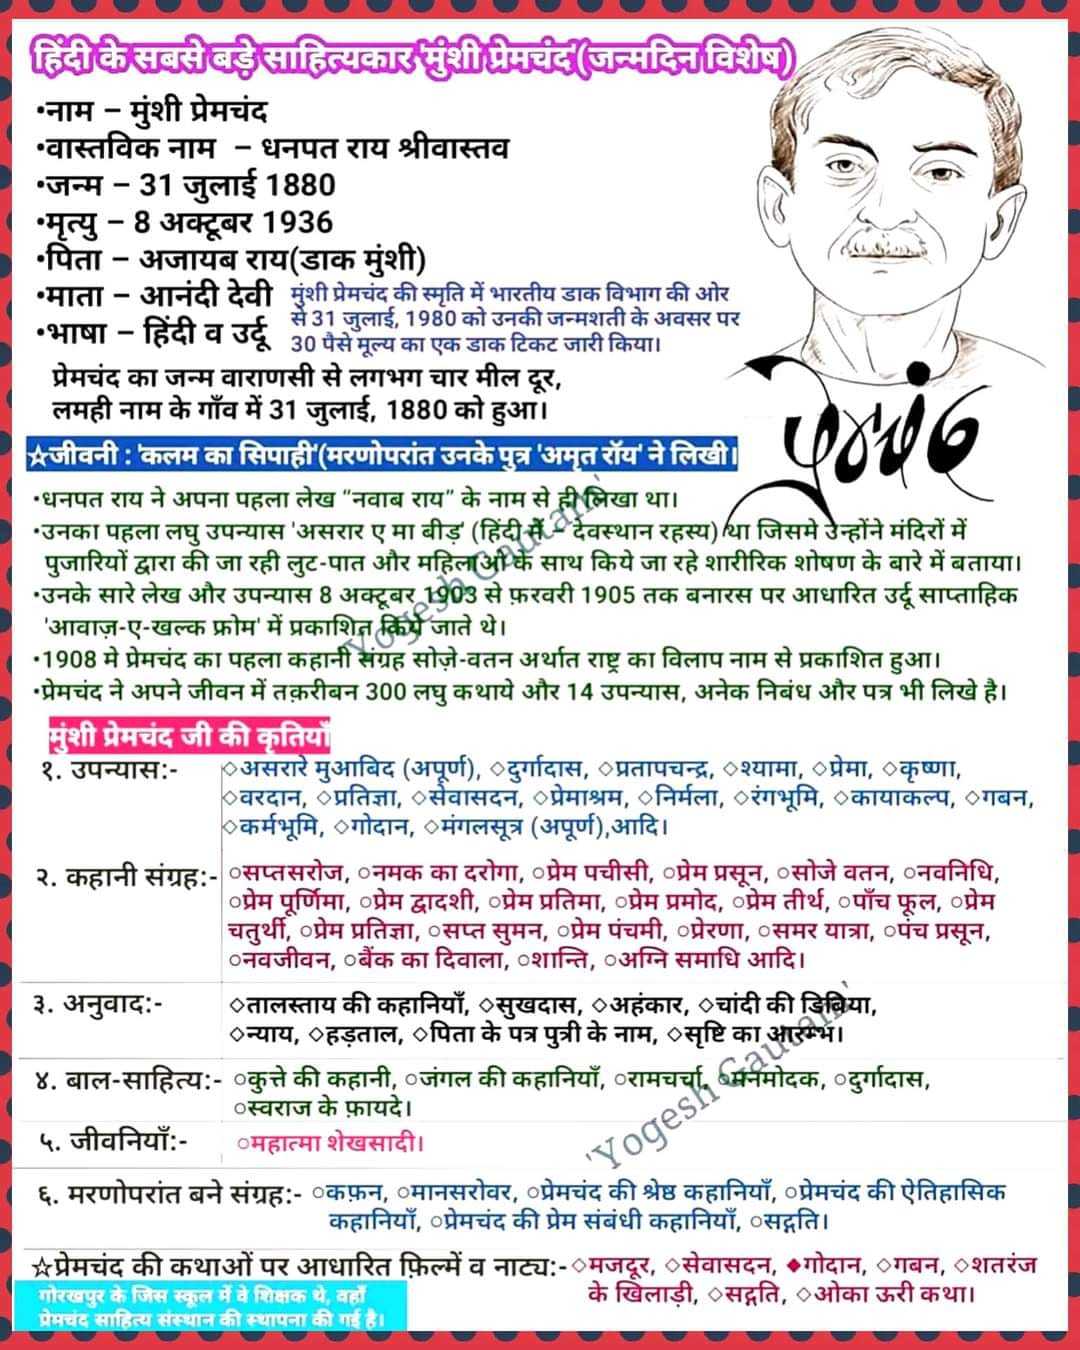 हिंदी के सबसे बड़े साहित्यकार 'मुंशी प्रेमचंद'(जन्मदिन विशेष)
•नाम – मुंशी प्रेमचंद
•वास्तविक नाम – धनपत राय श्रीवास्तव
•जन्म – 31 जुलाई 1880
•मृत्यु – 8 अक्टूबर 1936
•पिता – अजायब राय(डाक मुंशी)
•माता – आनंदी देवी
•भाषा – हिंदी व उर्दू
मुंशी प्रेमचंद की स्मृति में भारतीय डाक विभाग की ओर
से 31 जुलाई, 1980 को उनकी जन्मशती के अवसर पर
30 पैसे मूल्य का एक डाक टिकट जारी किया।
प्रेमचंद का जन्म वाराणसी से लगभग चार मील दूर,
लमही नाम के गाँव में 31 जुलाई, 1880 को हुआ।
प्रेमचंद
☆जीवनी : 'कलम का सिपाही'(मरणोपरांत उनके पुत्र 'अमृत रॉय' ने लिखी।
•धनपत राय ने अपना पहला लेख "नवाब राय" के नाम से ही लिखा था।
•उनका पहला लघु उपन्यास 'असरार ए मा बीड़' (हिंदी में - देवस्थान रहस्य) था जिसमे उन्होंने मंदिरों में
पुजारियों द्वारा की जा रही लुट-पात और महिलाओं के साथ किये जा रहे शारीरिक शोषण के बारे में बताया।
•उनके सारे लेख और उपन्यास 8 अक्टूबर 1903 से फ़रवरी 1905 तक बनारस पर आधारित उर्दू साप्ताहिक
'आवाज़-ए-खल्क फ्रोम' में प्रकाशित किये जाते थे।
•1908 मे प्रेमचंद का पहला कहानी संग्रह सोज़े-वतन अर्थात राष्ट्र का विलाप नाम से प्रकाशित हुआ।
•प्रेमचंद ने अपने जीवन में तक़रीबन 300 लघु कथाये और 14 उपन्यास, अनेक निबंध और पत्र भी लिखे है।
'Yogesh Gautam'
मुंशी प्रेमचंद जी की कृतियाँ
१. उपन्यास:- ◇असरारे मुआबिद (अपूर्ण), ◇दुर्गादास, ◇प्रतापचन्द्र, ◇श्यामा, ◇प्रेमा, ◇कृष्णा,
◇वरदान, ◇प्रतिज्ञा, ◇सेवासदन, ◇प्रेमाश्रम, ◇निर्मला, ◇रंगभूमि, ◇कायाकल्प, ◇गबन,
◇कर्मभूमि, ◇गोदान, ◇मंगलसूत्र (अपूर्ण),आदि।
२. कहानी संग्रह:- ○सप्तसरोज, ○नमक का दरोगा, ○प्रेम पचीसी, ○प्रेम प्रसून, ○सोजे वतन, ○नवनिधि,
○प्रेम पूर्णिमा, ○प्रेम द्वादशी, ○प्रेम प्रतिमा, ○प्रेम प्रमोद, ○प्रेम तीर्थ, ○पाँच फूल, ○प्रेम
चतुर्थी, ○प्रेम प्रतिज्ञा, ○सप्त सुमन, ○प्रेम पंचमी, ○प्रेरणा, ○समर यात्रा, ○पंच प्रसून,
○नवजीवन, ○बैंक का दिवाला, ○शान्ति, ○अग्नि समाधि आदि।
३. अनुवाद:- ◇तालस्ताय की कहानियाँ, ◇सुखदास, ◇अहंकार, ◇चांदी की डिबिया,
◇न्याय, ◇हड़ताल, ◇पिता के पत्र पुत्री के नाम, ◇सृष्टि का आरम्भ।
४. बाल-साहित्य:- ○कुत्ते की कहानी, ○जंगल की कहानियाँ, ○रामचर्चा, ○मनमोदक, ○दुर्गादास,
○स्वराज के फ़ायदे।
५. जीवनियाँ:- ○महात्मा शेखसादी।
'Yogesh Gautam'
६. मरणोपरांत बने संग्रह:- ○कफ़न, ○मानसरोवर, ○प्रेमचंद की श्रेष्ठ कहानियाँ, ○प्रेमचंद की ऐतिहासिक
कहानियाँ, ○प्रेमचंद की प्रेम संबंधी कहानियाँ, ○सद्गति।
☆प्रेमचंद की कथाओं पर आधारित फ़िल्में व नाट्य:-◇मजदूर, ◇सेवासदन, ◆गोदान, ◇गबन, ◇शतरंज
के खिलाड़ी, ◇सद्गति, ◇ओका ऊरी कथा।
गोरखपुर के जिस स्कूल में वे शिक्षक थे, वहाँ
प्रेमचंद साहित्य संस्थान की स्थापना की गई है।